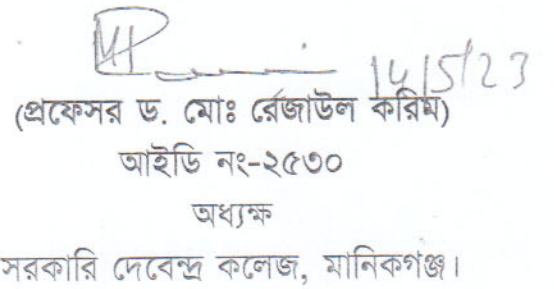 14/5/23
(প্রফেসর ড. মোঃ রেজাউল করিম)
আইডি নং-২৫৩০
অধ্যক্ষ
সরকারি দেবেন্দ্র কলেজ, মানিকগঞ্জ।